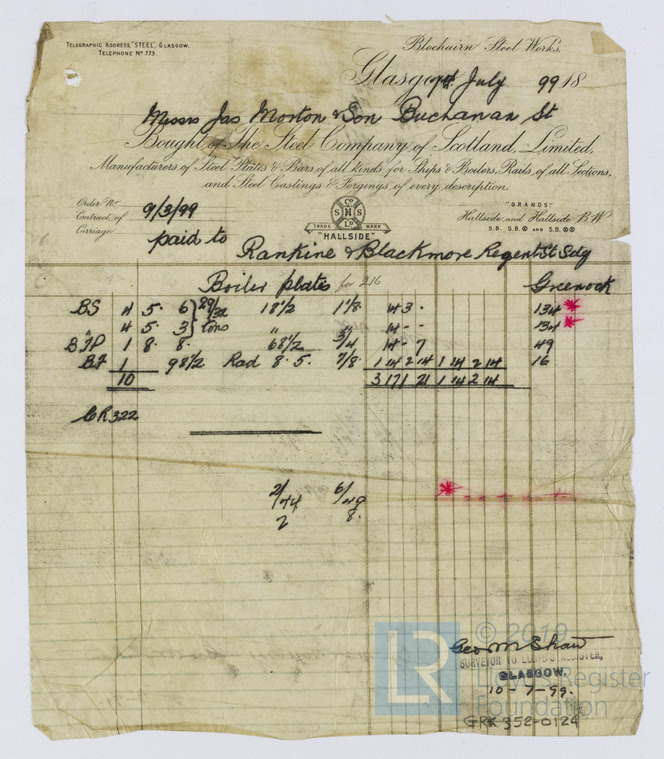 TELEGRAPHIC ADDRESS, "STEEL", GLASGOW.
TELEPHONE Nº 773.
Blochairn Steel Works.
Glasgow July 9918
Messrs Jas Morton & Son Buchanan St
Bought of The Steel Company of Scotland, Limited,
Manufacturers of Steel Plates & Bars of all kinds for Ships & Boilers, Rails of all Sections,
and Steel Castings & Forgings of every description.
Order Nº
Contract of 9/3/99
Carriage paid to
Cº
S H S
Lº
TRADE MARK
"HALLSIDE"
"BRANDS"
Hallside and Hallside B.W.
S.B. S.B. AND S.B.
Rankine & Blackmore Regent St Sdg
Boiler plates for 216 Greenock
BS 4 5. 6 29/32 18 1/2 1 1/8 14 3 . 134 *
" 4 5. 3 tons " " 14 - - 134 *
1 8. 8. 68 1/2 3/4 14 - 7 49
1 98 1/2. Rad 8. 5. 7/8 1 14 2 14 1 14 2 14 16
10 3 171 21 1 14 2 14
CR322
2/44 6/49
2 8.
*
Geo M Shaw
SURVEYOR TO LLOYD'S REGISTER,
GLASGOW.
10-7-99.
GRK-352-0124
LR
© 2019
Lloyd's Register
Foundation